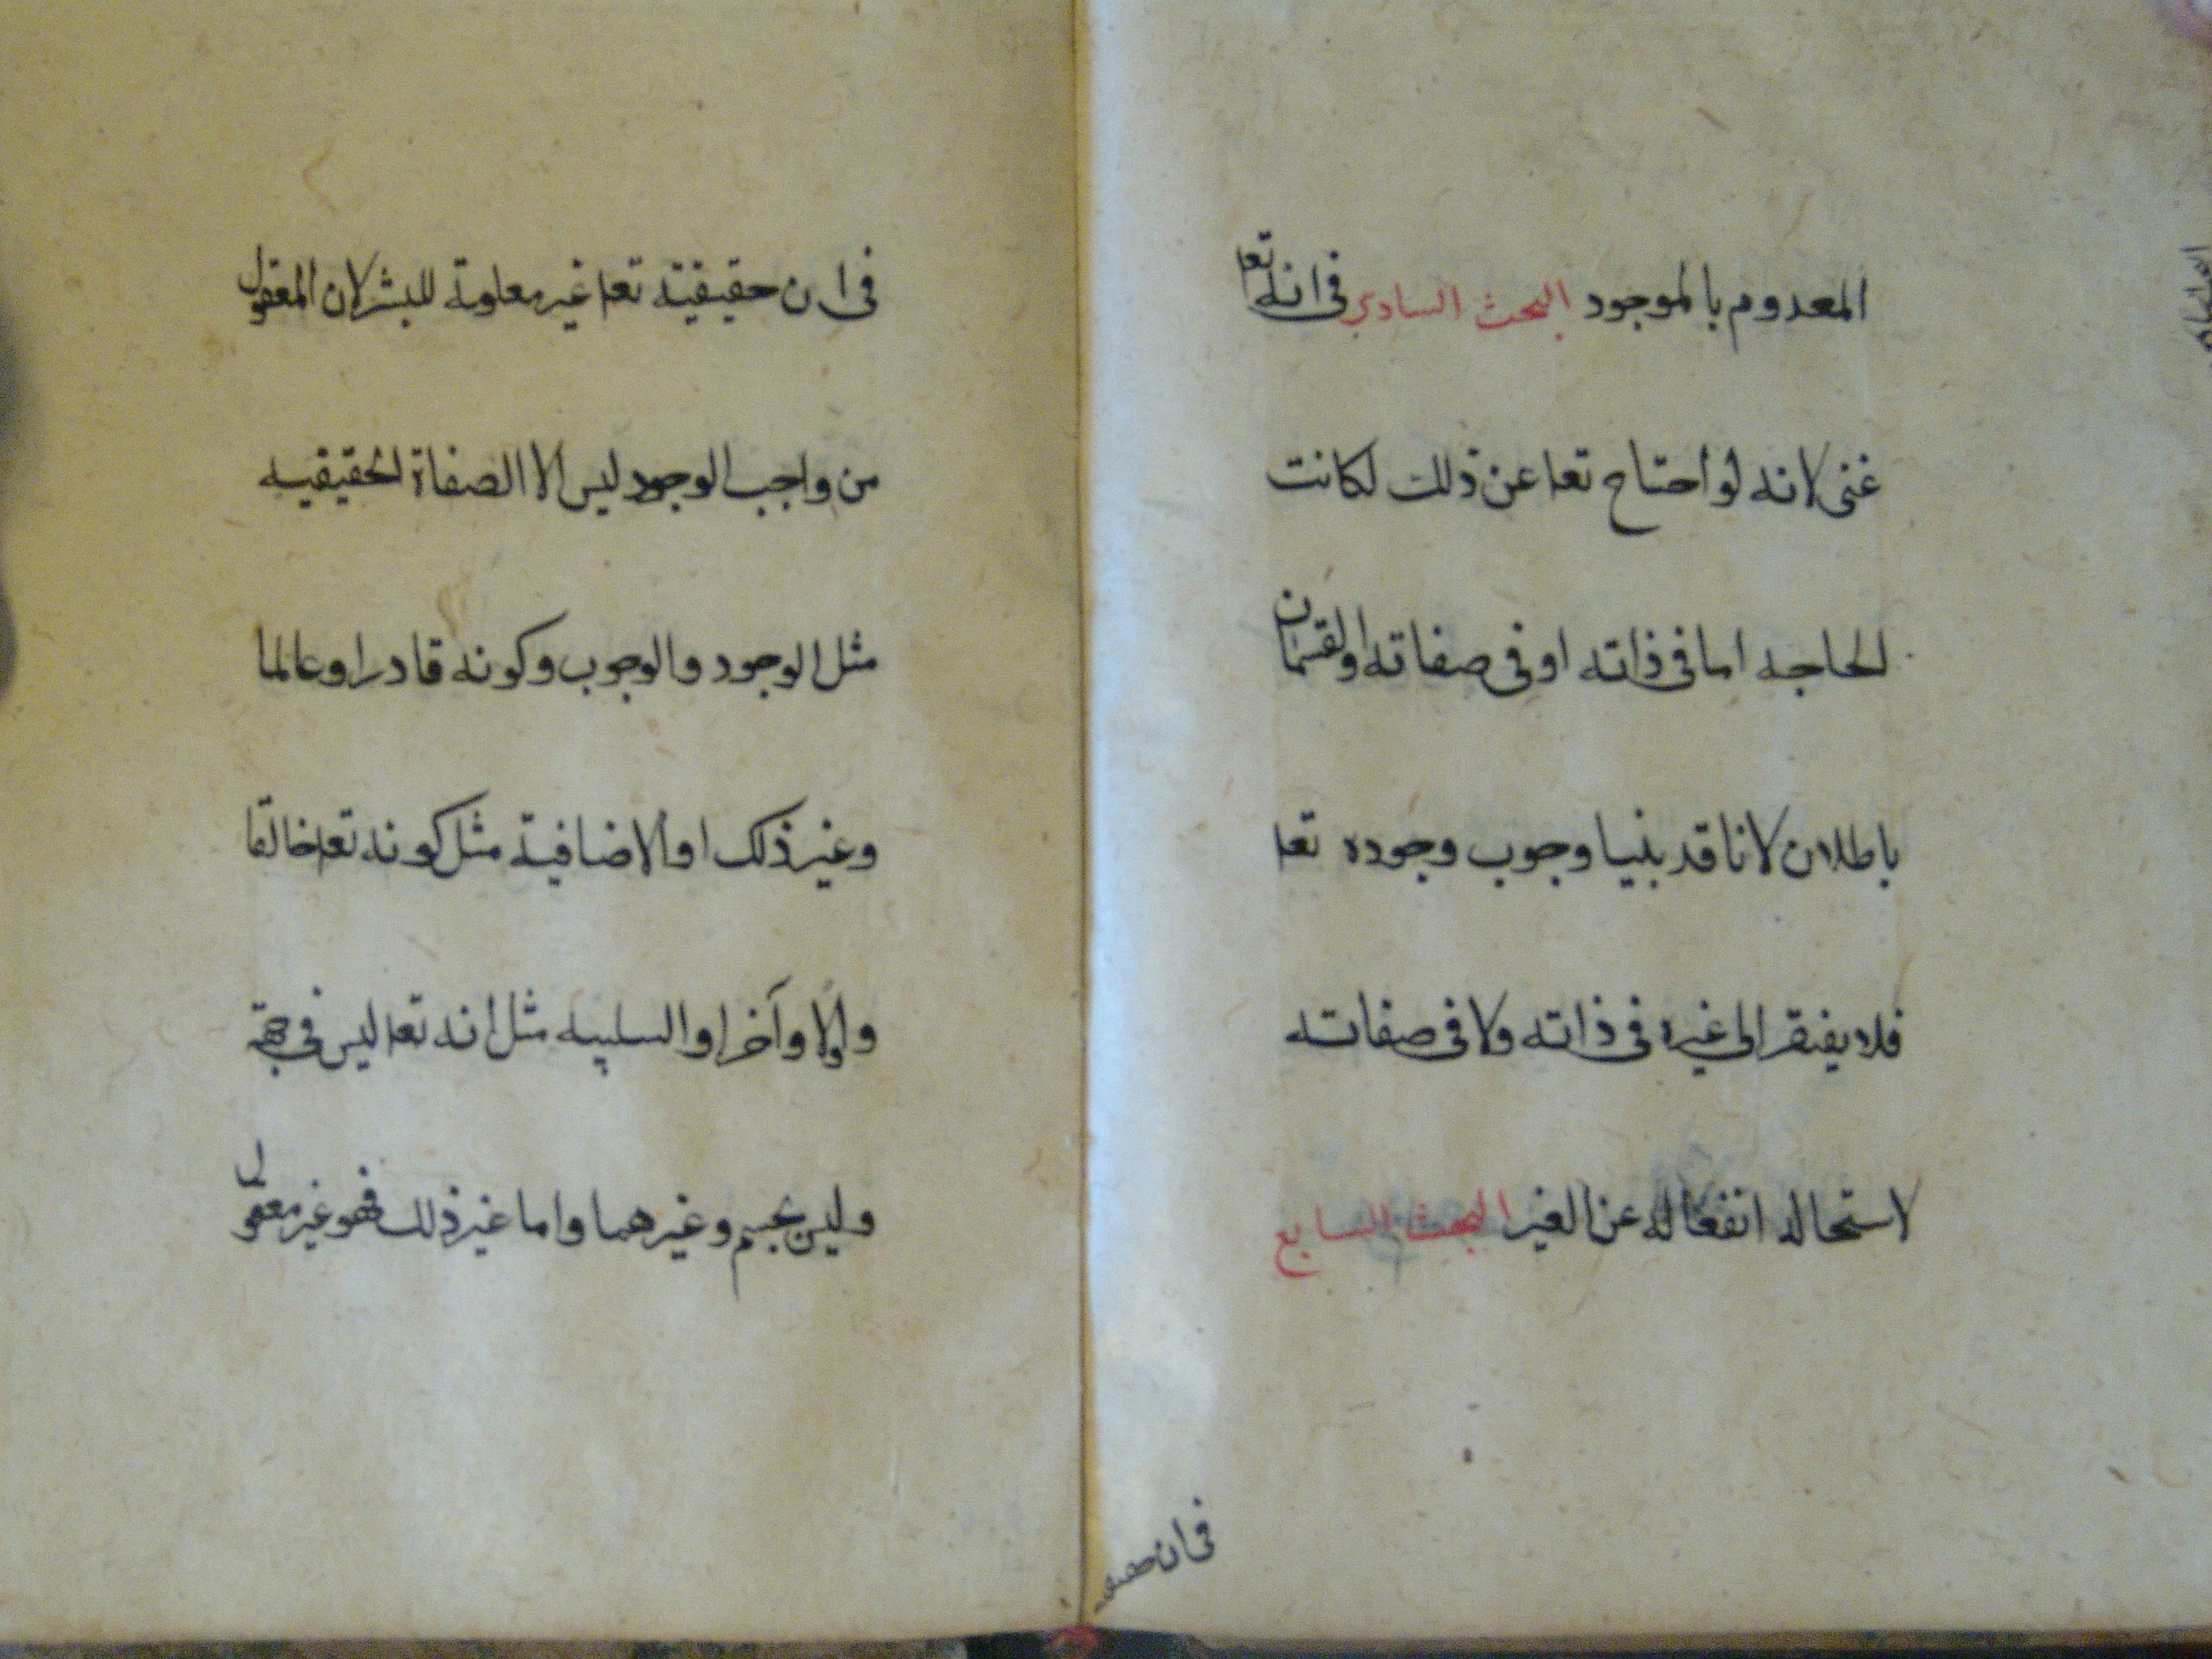 المعدوم بالموجود البحث السادس فى انه تعا
غنى لانه لو احتاج تعا عن ذلك لكانت
الحاجه اما فى ذاته او فى صفاته اولقسمان
باطلان لانا قد بنيا وجوب وجوده تعا
فلا يفتقر الى غيره فى ذاته ولا فى صفاته
لاستحاله انفعاله عن الغير البحث السابع
فى ان حقيقـ
فى ان حقيقية تعا غير معلومة للبشر لان المعقول
من واجب الوجود ليس الا الصفاة الحقيقيه
مثل الوجود والوجوب وكونه قادرا وعالما
وغير ذلك او الاضافية مثل كونه تعا خالقا
واولا وآخرا والسلبيه مثل انه تعا ليس فى جهة
وليس بجسم وغيرهما واما غير ذلك فهو غير معقول